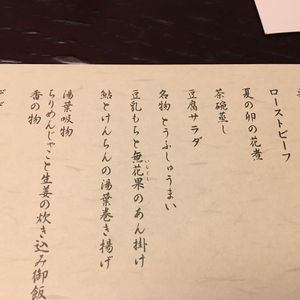 ローストビーフ
夏の卵の花煮
茶碗蒸し
豆腐サラダ
名物 とうふしゅうまい
豆乳もちと無花果のあん掛け
いちじく
鮎とけんちんの湯葉巻き揚げ
湯葉吸物
ちりめんじゃこと生姜の炊き込み御飯
香の物